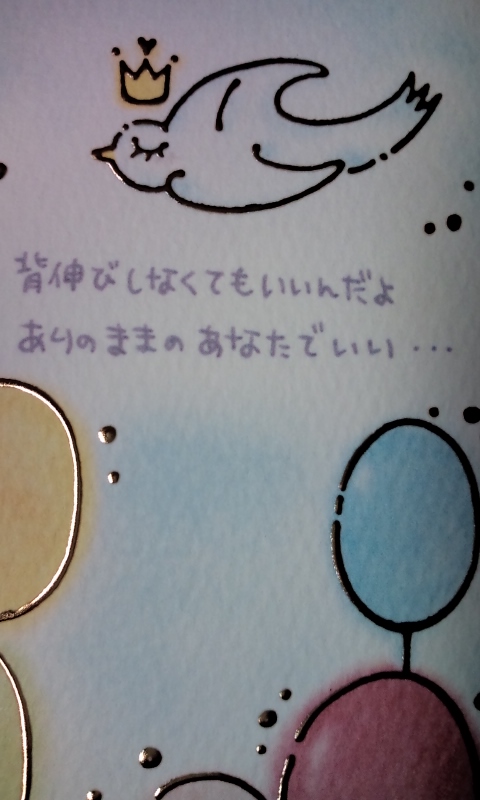 背伸びしなくてもいいんだよ
ありのままの あなたでいい ...